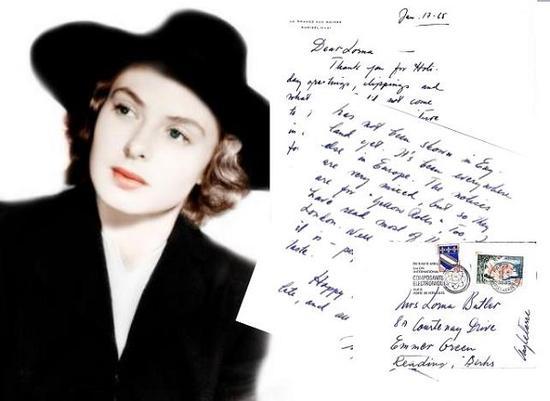 LA GRANGE AUX MOINES
Jan. 17-65
Dear Lorna —
Thank you for Holi-
day greetings, clippings and
what it not come
to , has not been shown in Eng-
in . land yet. It's been everywhere
to else in Europe. The notices
are very mixed, but so they
are for "Yellow Rolls" too,
have read most of it
London. Well
it is -
taste.
Happy
late, and all
COMPOSANTS
ELECTRONIQUES
Mrs Lorna Butler
8a Courtenay Drive
Emmer Green
Reading, Berks
Angleterre